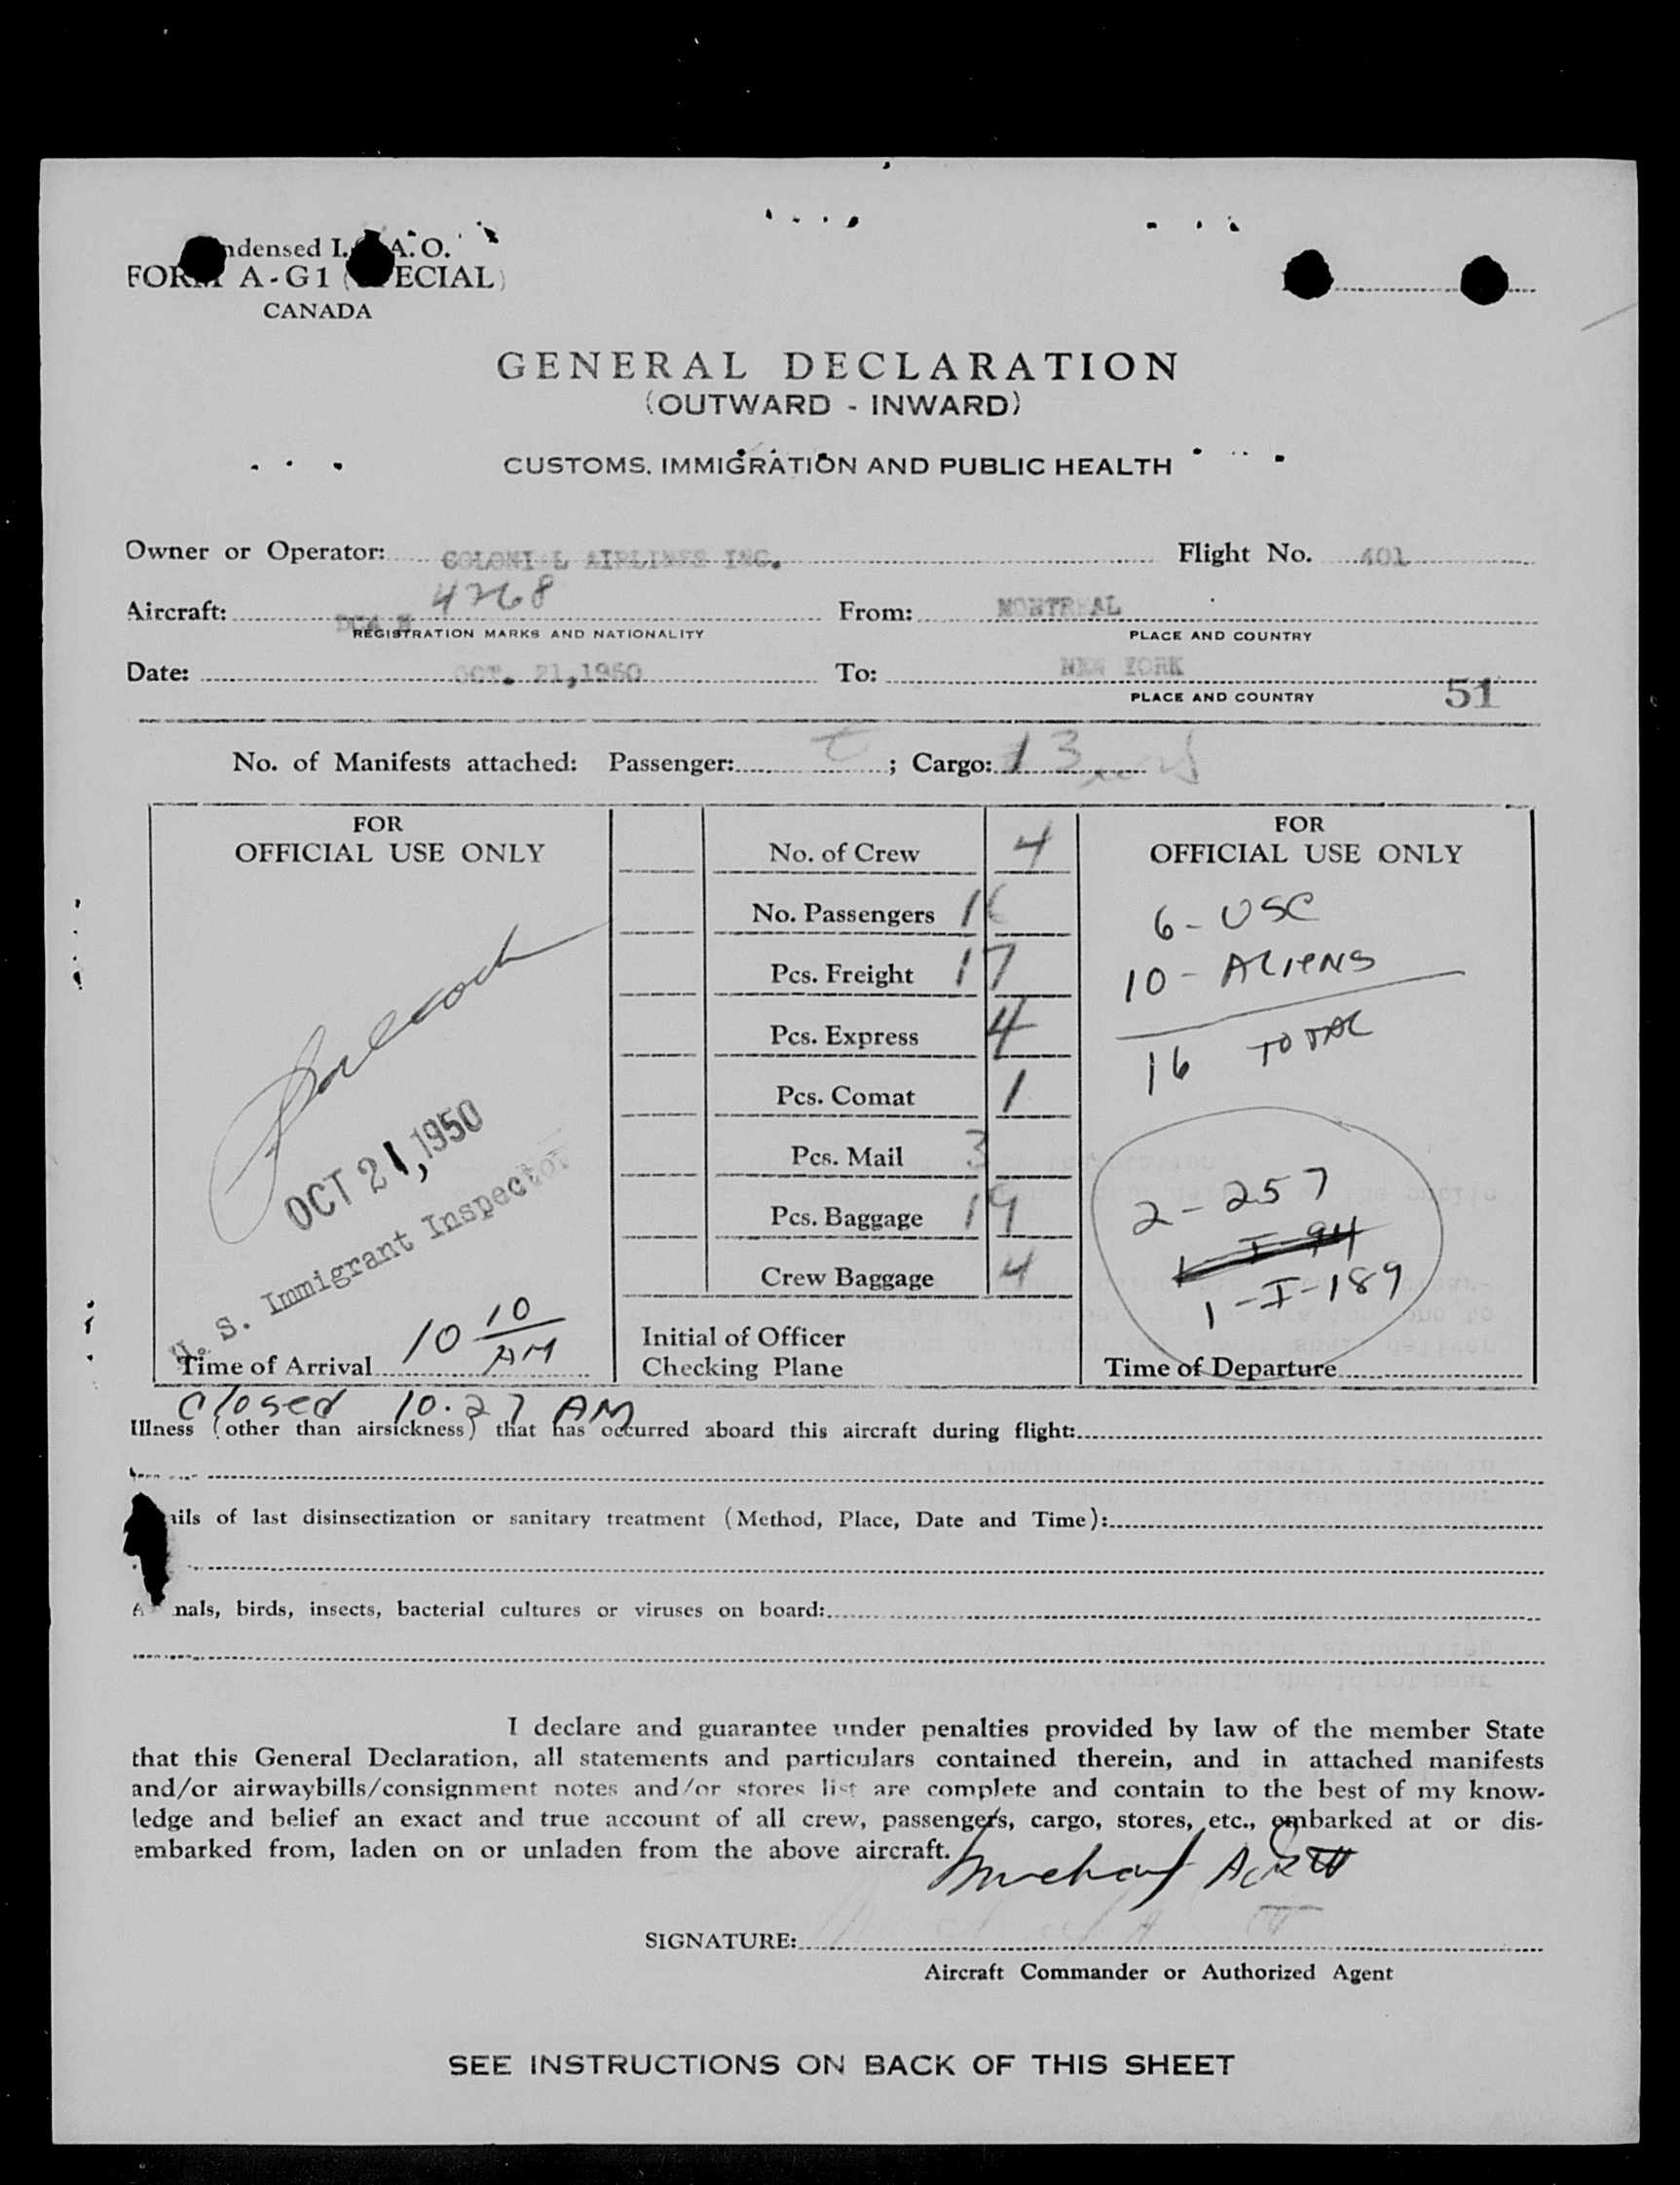 ndensed I. A. O.
FORM A-G1 ( ECIAL)
CANADA
GENERAL DECLARATION
(OUTWARD - INWARD)
CUSTOMS, IMMIGRATION AND PUBLIC HEALTH
Owner or Operator: COLONIAL AIRLINES INC. Flight No. 401
4268
Aircraft: DC4 N From: MONTREAL
REGISTRATION MARKS AND NATIONALITY PLACE AND COUNTRY
Date: OCT. 21,1950 To: NEW YORK
PLACE AND COUNTRY 51
No. of Manifests attached: Passenger: ; Cargo: 13
FOR
OFFICIAL USE ONLY
OCT 21,1950
U. S. Immigrant Inspector
Time of Arrival 10 10
AM
No. of Crew 4
No. Passengers 16
Pcs. Freight 17
Pcs. Express 4
Pcs. Comat 1
Pcs. Mail 3
Pcs. Baggage 19
Crew Baggage 4
Initial of Officer
Checking Plane
FOR
OFFICIAL USE ONLY
6 - USC
10 - ALIENS
16 TOTAL
2 - 257
1 I-94
1 - I-189
Time of Departure
Closed 10.27 AM
Illness (other than airsickness) that has occurred aboard this aircraft during flight:
ails of last disinsectization or sanitary treatment (Method, Place, Date and Time):
A nals, birds, insects, bacterial cultures or viruses on board:
I declare and guarantee under penalties provided by law of the member State
that this General Declaration, all statements and particulars contained therein, and in attached manifests
and/or airwaybills/consignment notes and/or stores list are complete and contain to the best of my know-
ledge and belief an exact and true account of all crew, passengers, cargo, stores, etc., embarked at or dis-
embarked from, laden on or unladen from the above aircraft.
SIGNATURE:
Aircraft Commander or Authorized Agent
SEE INSTRUCTIONS ON BACK OF THIS SHEET